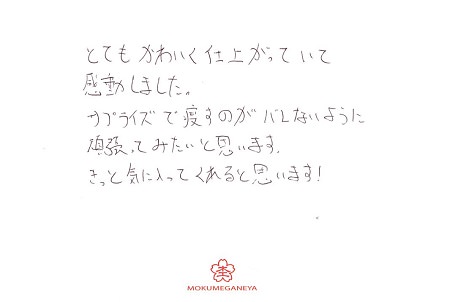 とてもかわいく仕上がっていて
感動しました。
サプライズで渡すのがバレないように
頑張ってみたいと思います。
きっと気に入ってくれると思います！
杢
MOKUMEGANEYA